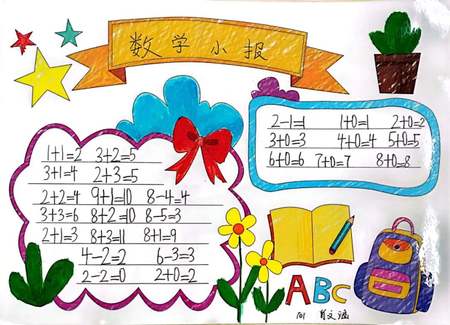 数学小报
2-1=1 1+0=1 2+0=2
3+0=3 4+0=4 5+0=5
6+0=6 7+0=7 8+0=8
1+1=2 3+2=5
3+1=4 2+3=5
2+2=4 9+1=10 8-4=4
3+3=6 8+2=10 8-5=3
2+1=3 8+3=11 8+1=9
4-2=2 6-3=3
2-2=0 2+0=2
ABC